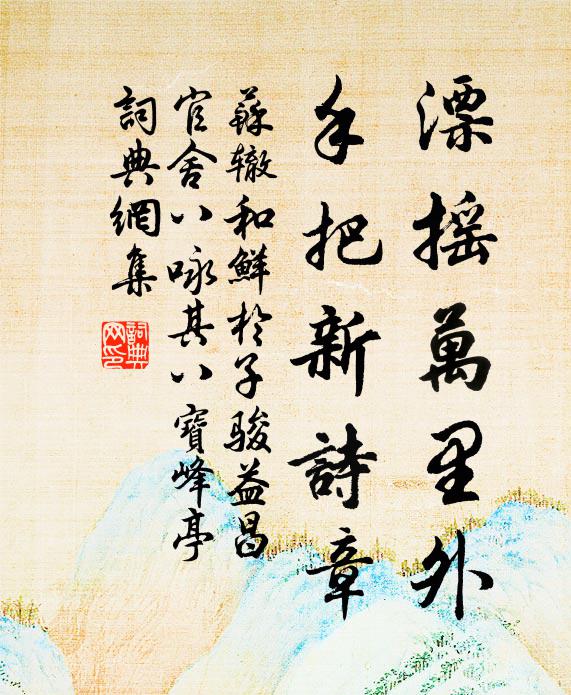 漂摇萬里外
手把新詩章
蘇辙和鮮於子駿益昌
官舍八咏其八寶峰亭
詞典網集
詞典
网印